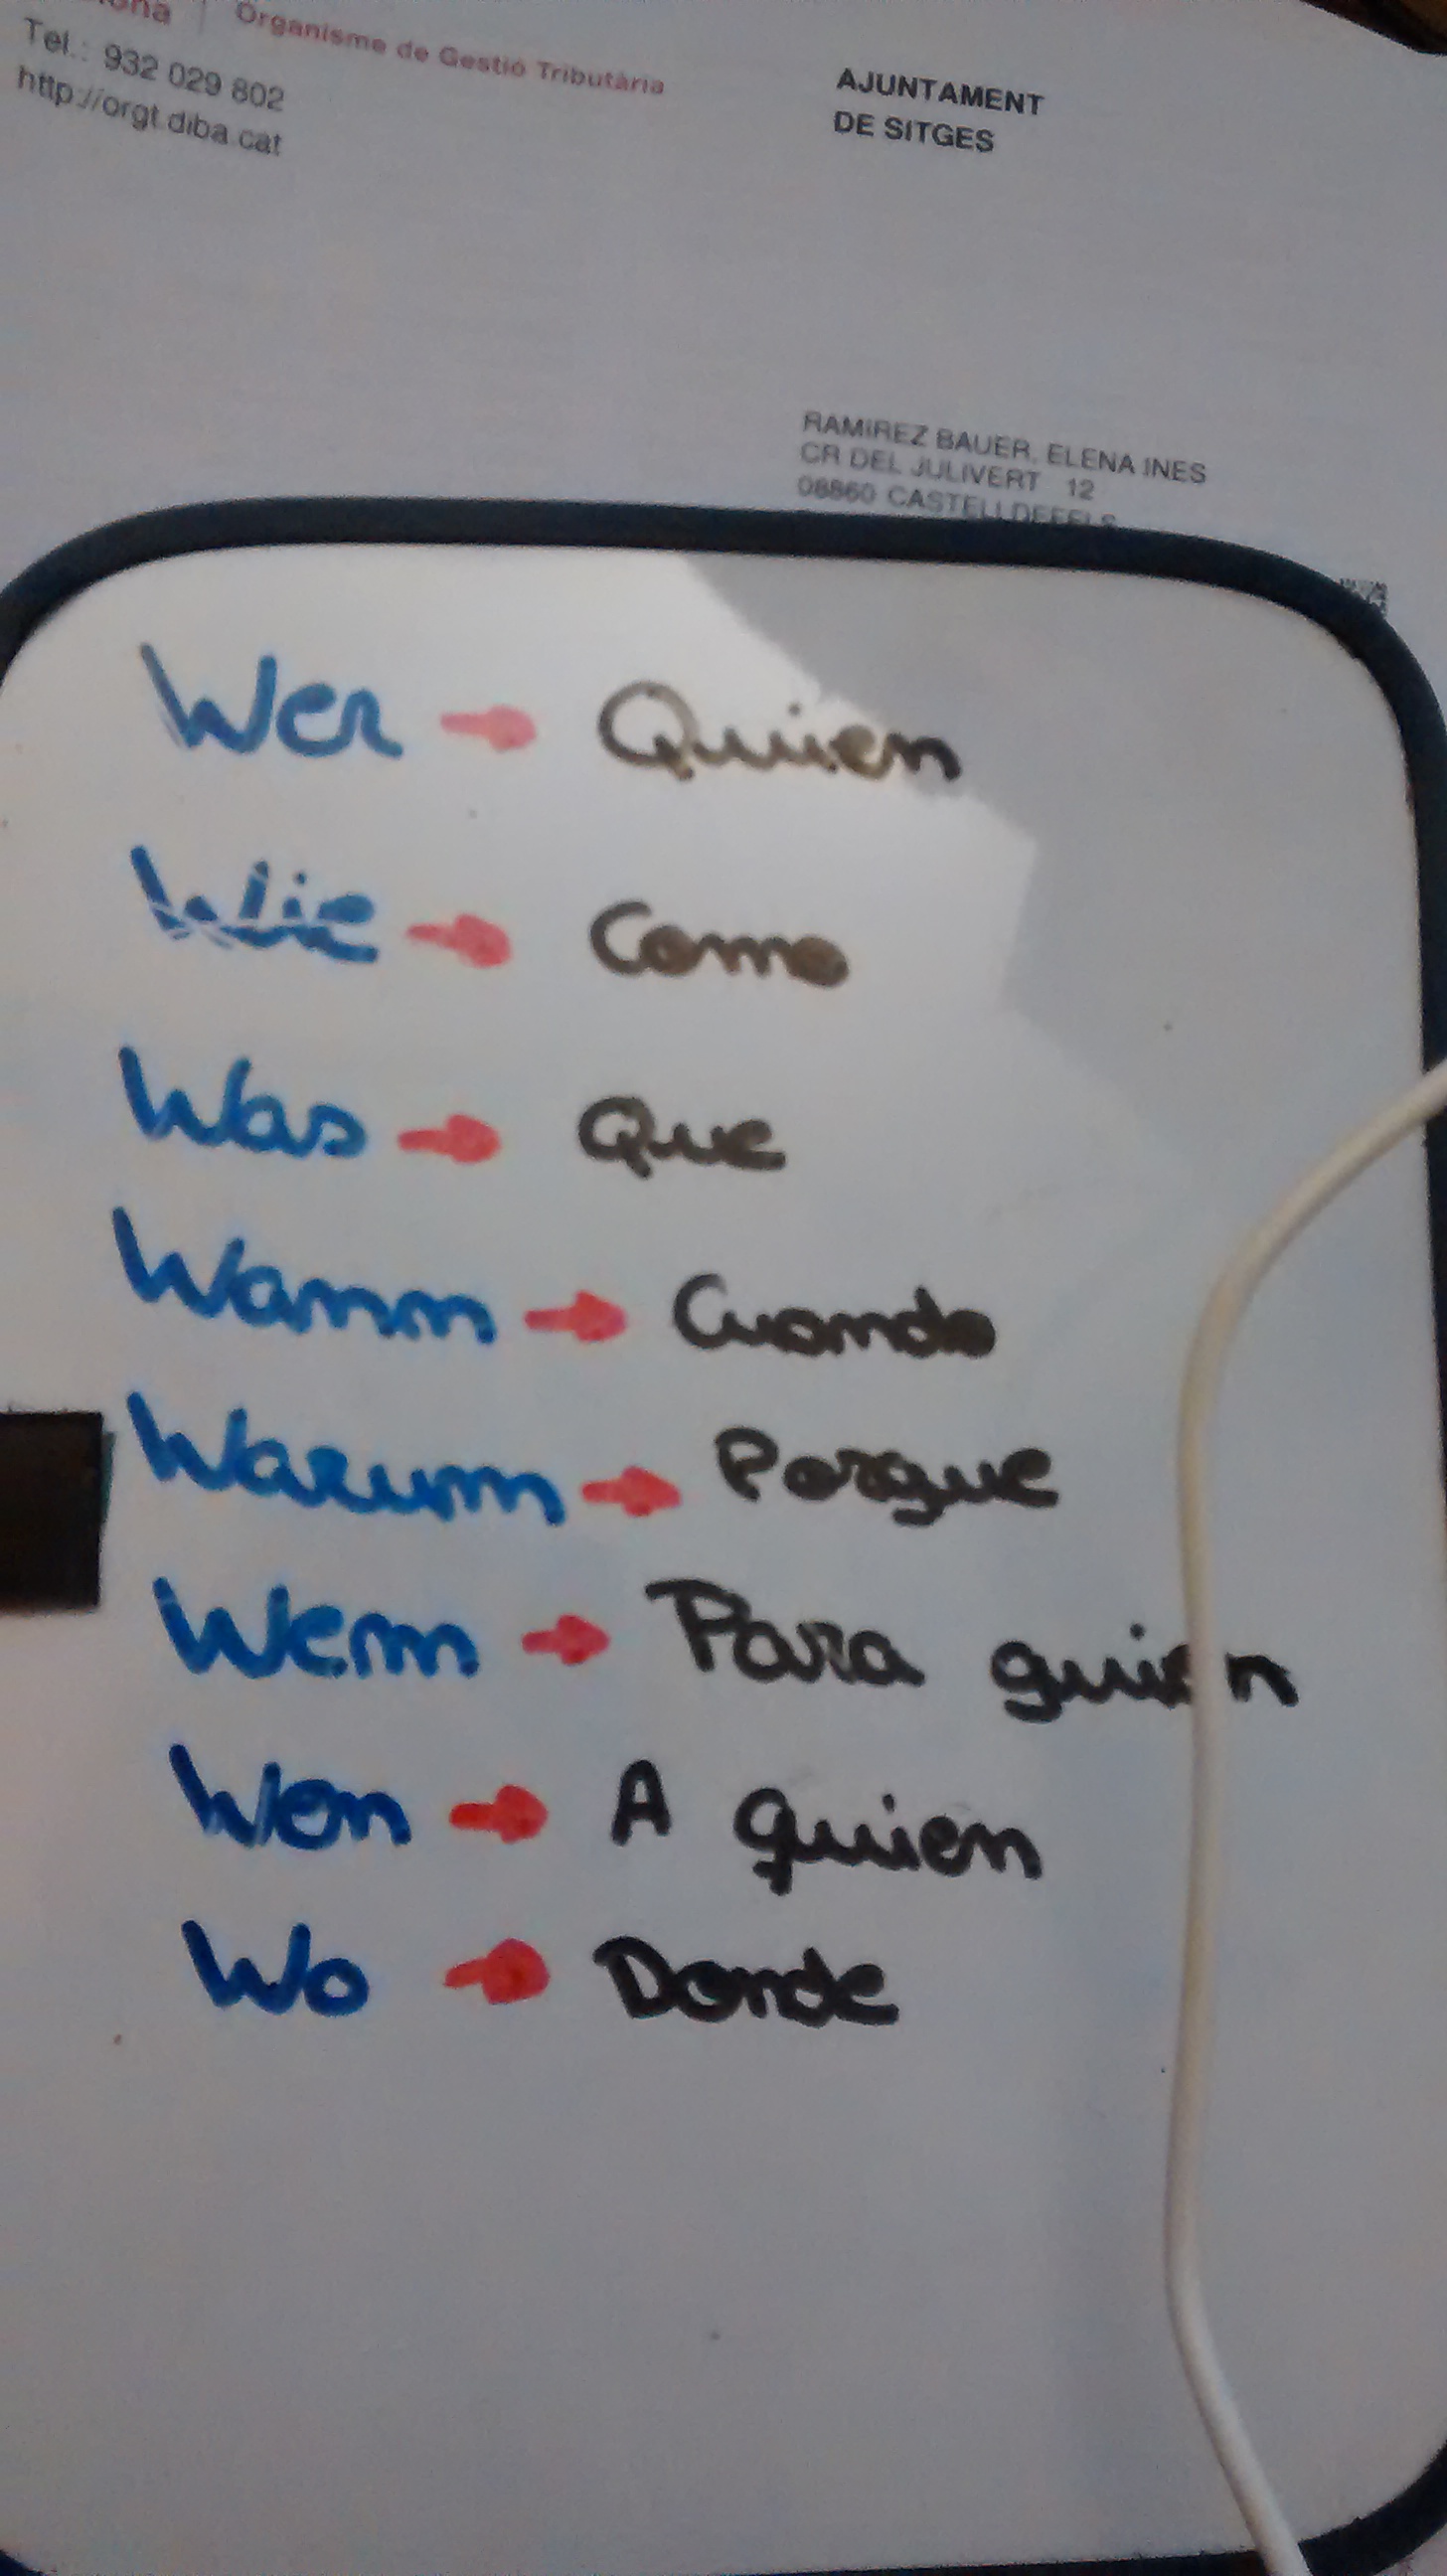 Organisme de Gestió Tributària
Tel.: 932 029 802
http://orgt.diba.cat
AJUNTAMENT
DE SITGES
RAMIREZ BAUER, ELENA INES
CR DEL JULIVERT 12
08860 CASTELLDEFELS
Wer → Quien
Wie → Como
Was → Que
Wann → Cuando
Warum → Porque
Wem → Para quien
Wen → A quien
Wo → Donde